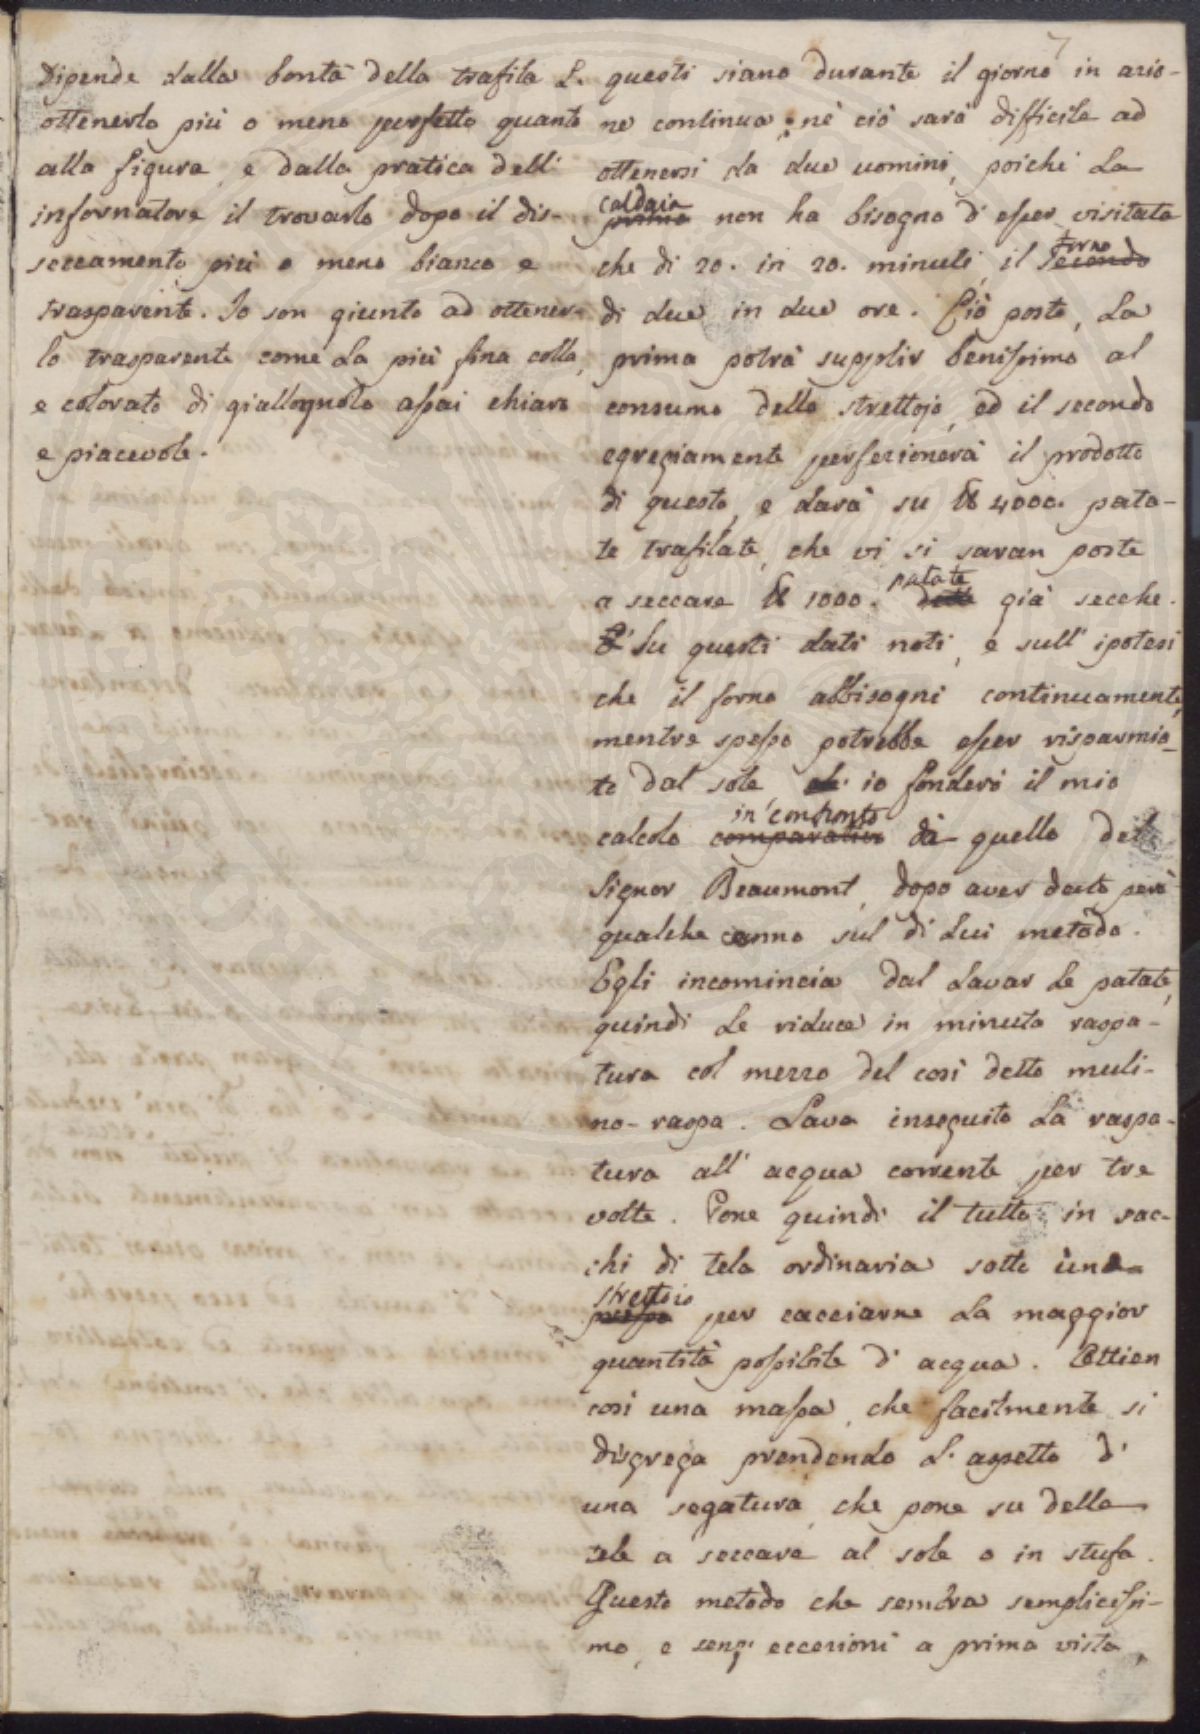 7
Dipende dalla bontà della trafila l'
ottenerlo più o meno perfetto quanto
alla figura, e dalla pratica dell'
infornatore il trovarlo dopo il dis-
seccamento più o meno bianco e
trasparente. Io son giunto ad ottener-
lo trasparente come la più fina colla,
e colorato di giallognolo assai chiaro
e piacevole.
questi siano durante il giorno in azio-
ne continua, nè ciò sarà difficile ad
ottenersi da due uomini, poichè la
caldaia
prima non ha bisogno d'esser visitata
che di 20. in 20. minuti, il
forno
secondo
di due in due ore. Ciò posto, la
prima potrà supplir benissimo al
consumo dello strettojo, ed il secondo
egregiamente perfezionerà il prodotto
di questo, e darà su ℔ 4000. pata-
te trafilate, che vi si saran poste
a seccare ℔ 1000.
patate
dette già secche.
Su questi dati noti, e sull' ipotesi
che il forno abbisogni continuamente,
mentre spesso potrebbe esser risparmia-
to dal sole, io fonderò il mio
in confronto
calcolo comparativo da quello del
Signor Beaumont, dopo aver dato però
qualche cenno sul di lui metodo.
Egli incomincia dal lavar le patate,
quindi le riduce in minuta raspa-
tura col mezzo del così detto muli-
no-raspa. Lava inseguito la raspa-
tura all' acqua corrente per tre
volte. Pone quindi il tutto in sac-
chi di tela ordinaria sotto uno
strettoio
pressa per cacciarne la maggior
quantità possibile d' acqua. Ottien
così una massa, che facilmente si
disgrega prendendo l' aspetto d'
una segatura, che pone su delle
tele a seccare al sole o in stufa.
Questo metodo che sembra semplicissi-
mo, e senz' eccezioni a prima vista,